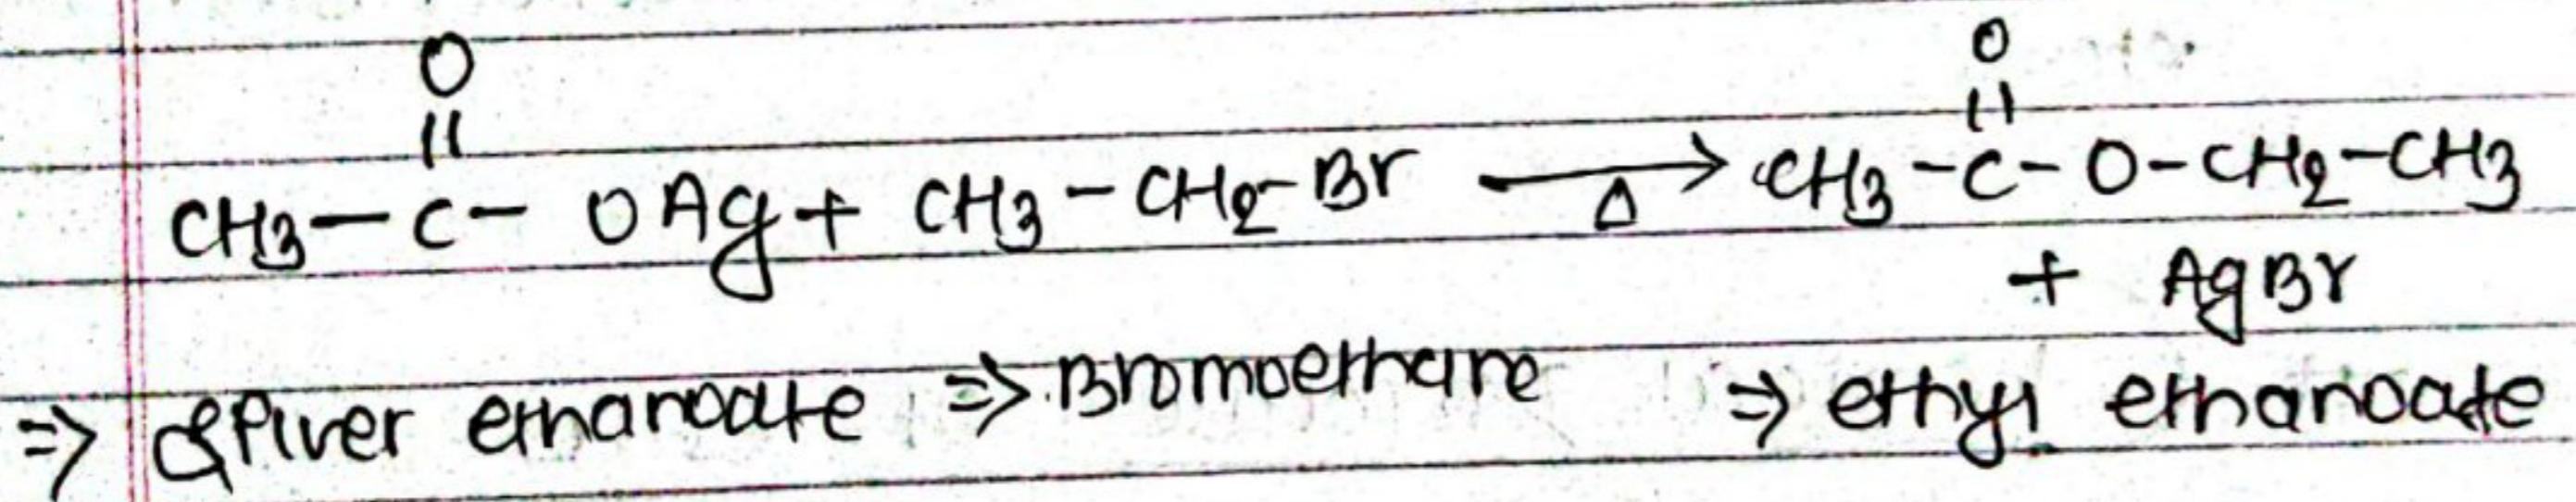 O O
|| ||
CH3-C-OAg + CH3-CH2-Br →Δ CH3-C-O-CH2-CH3
+ AgBr
⇒ silver ethanoate ⇒ Bromoethane ⇒ ethyl ethanoate